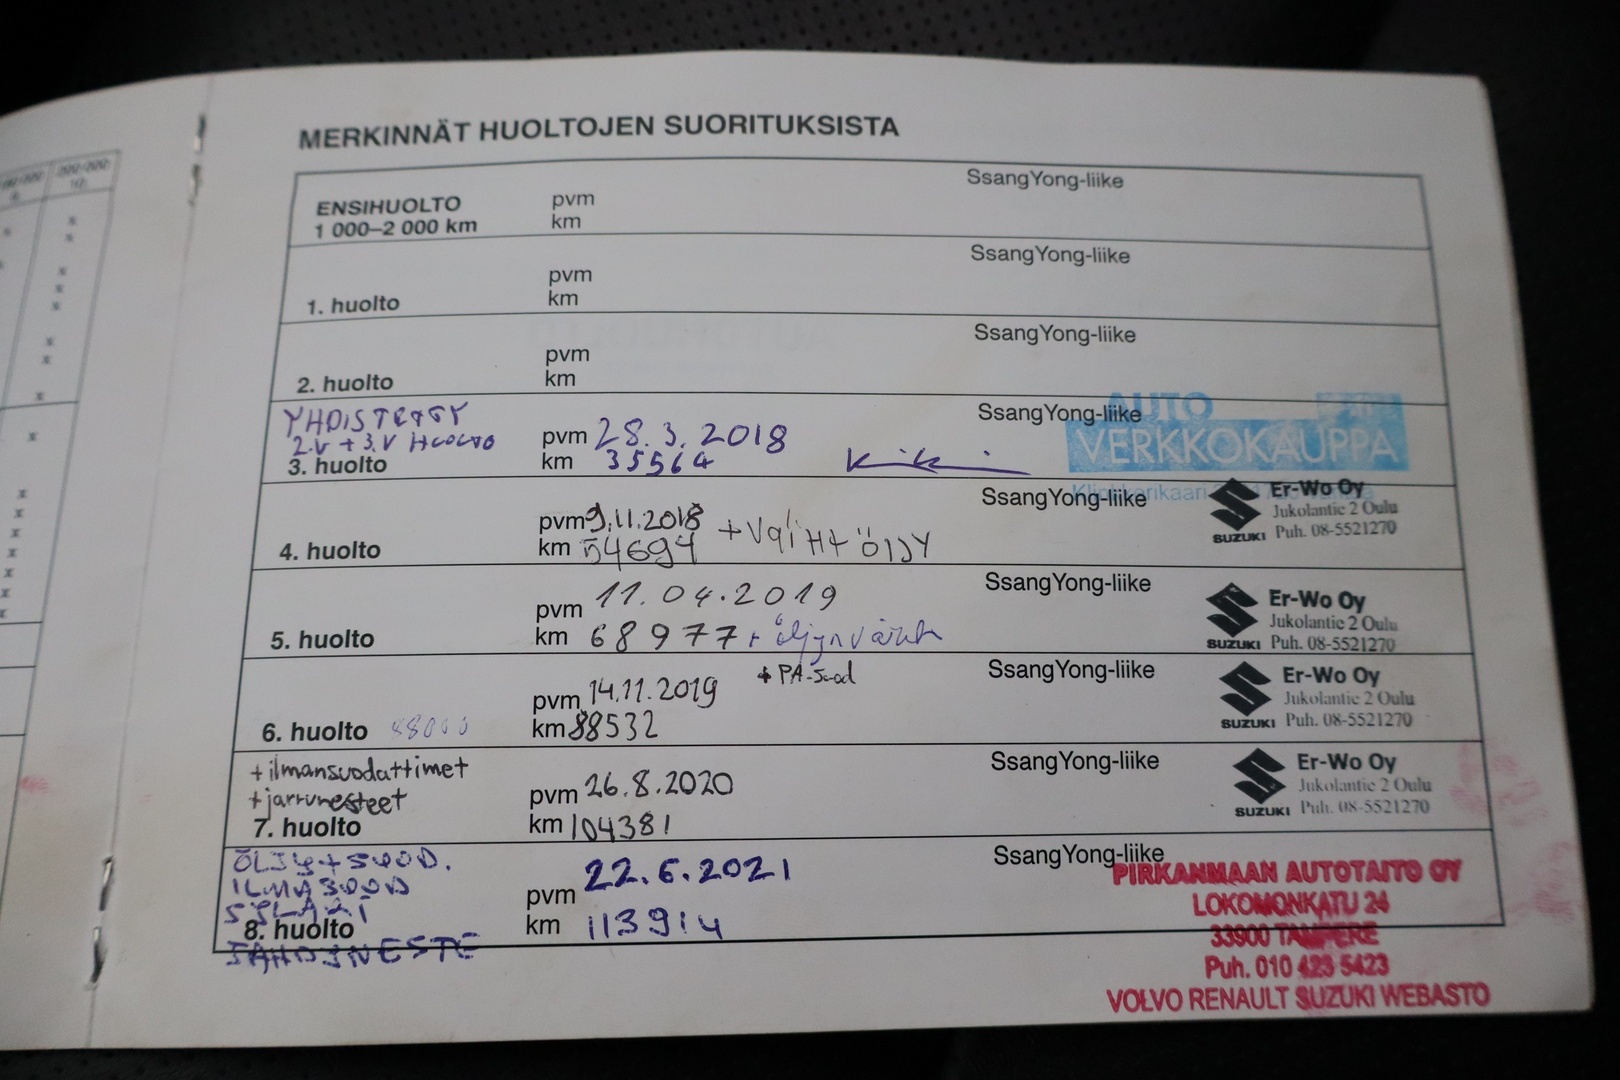 MERKINNÄT HUOLTOJEN SUORITUKSISTA
ENSIHUOLTO
1 000–2 000 km
pvm
km
SsangYong-liike
1. huolto
pvm
km
SsangYong-liike
2. huolto
pvm
km
SsangYong-liike
YHDISTETTY
2.V + 3.V HUOLTO
3. huolto
pvm 28.3.2018
km 35564
SsangYong-liike
AUTO
VERKKOKAUPPA
4. huolto
pvm 9.11.2018
km 54694 + Vaiht öljy
SsangYong-liike
SUZUKI
Er-Wo Oy
Jukolantie 2 Oulu
Puh. 08-5521270
5. huolto
pvm 11.04.2019
km 68977 + öljynvaihto
SsangYong-liike
SUZUKI
Er-Wo Oy
Jukolantie 2 Oulu
Puh. 08-5521270
6. huolto 88000
pvm 14.11.2019 + PA-suod
km 88532
SsangYong-liike
SUZUKI
Er-Wo Oy
Jukolantie 2 Oulu
Puh. 08-5521270
+ilmansuodattimet
+jarrunesteet
7. huolto
pvm 26.8.2020
km 104381
SsangYong-liike
SUZUKI
Er-Wo Oy
Jukolantie 2 Oulu
Puh. 08-5521270
ÖLJY+SUOD.
ILMASUOD
8. huolto
pvm 22.6.2021
km 113914
SsangYong-liike
PIRKANMAAN AUTOTAITO OY
LOKOMONKATU 24
33900 TAMPERE
Puh. 010 423 5423
VOLVO RENAULT SUZUKI WEBASTO